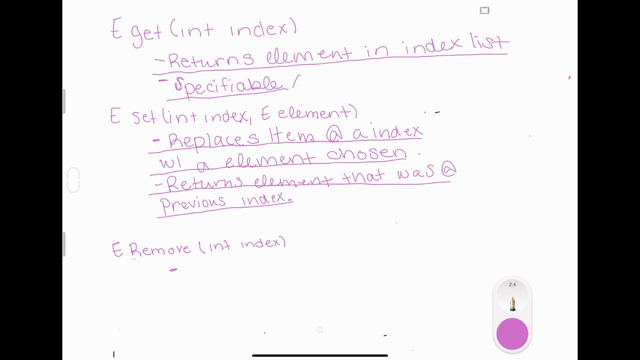 E get (int index)
- Returns element in index list
- Specifiable /
E set (int index, E element)
- Replaces Item @ a index
w/ a element chosen.
- Returns element that was @
Previous index.
E Remove (int index)
-
2.4